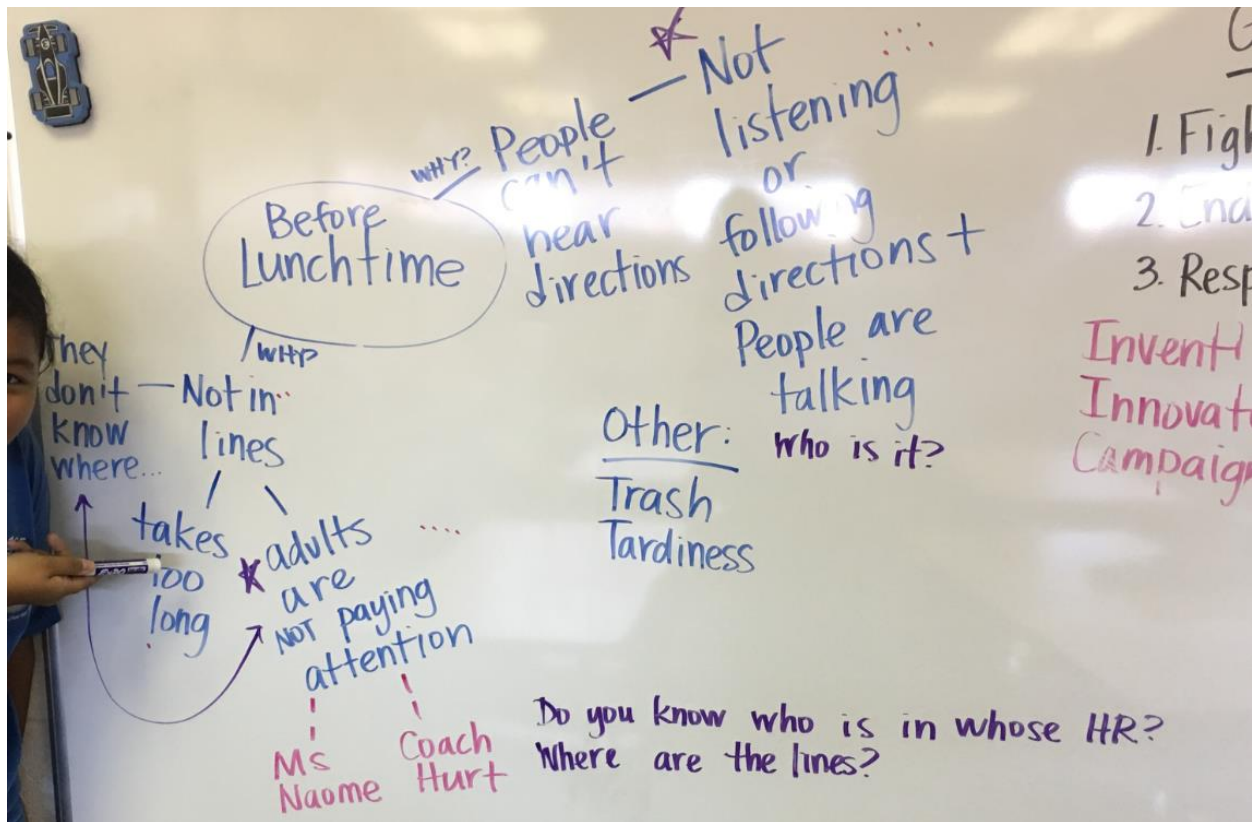 Before
Lunchtime
WHY?
People
can't
hear
directions
Not
listening
or
following
directions +
People are
talking
who is it?
WHY?
Not in
lines
They
don't
know
where...
takes
too
long
adults
are
NOT paying
attention
Ms
Naome
Coach
Hurt
Other:
Trash
Tardiness
Do you know who is in whose HR?
Where are the lines?
1.
2.
3.